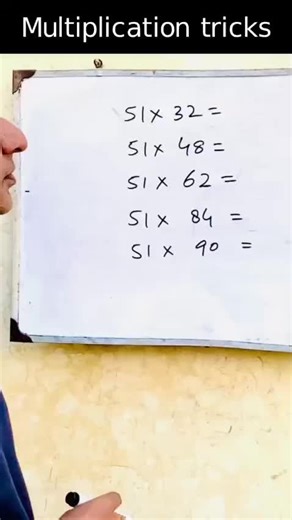 Multiplication tricks
51 × 32 =
51 × 48 =
51 × 62 =
51 × 84 =
51 × 90 =